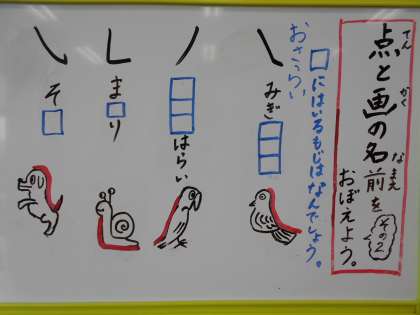 点と画の名前を
てん かく な まえ
おぼえよう。
その2
□にはいるもじはなんでしょう。
おさらい
みぎ□□□
□□□はらい
ま□り
そ□